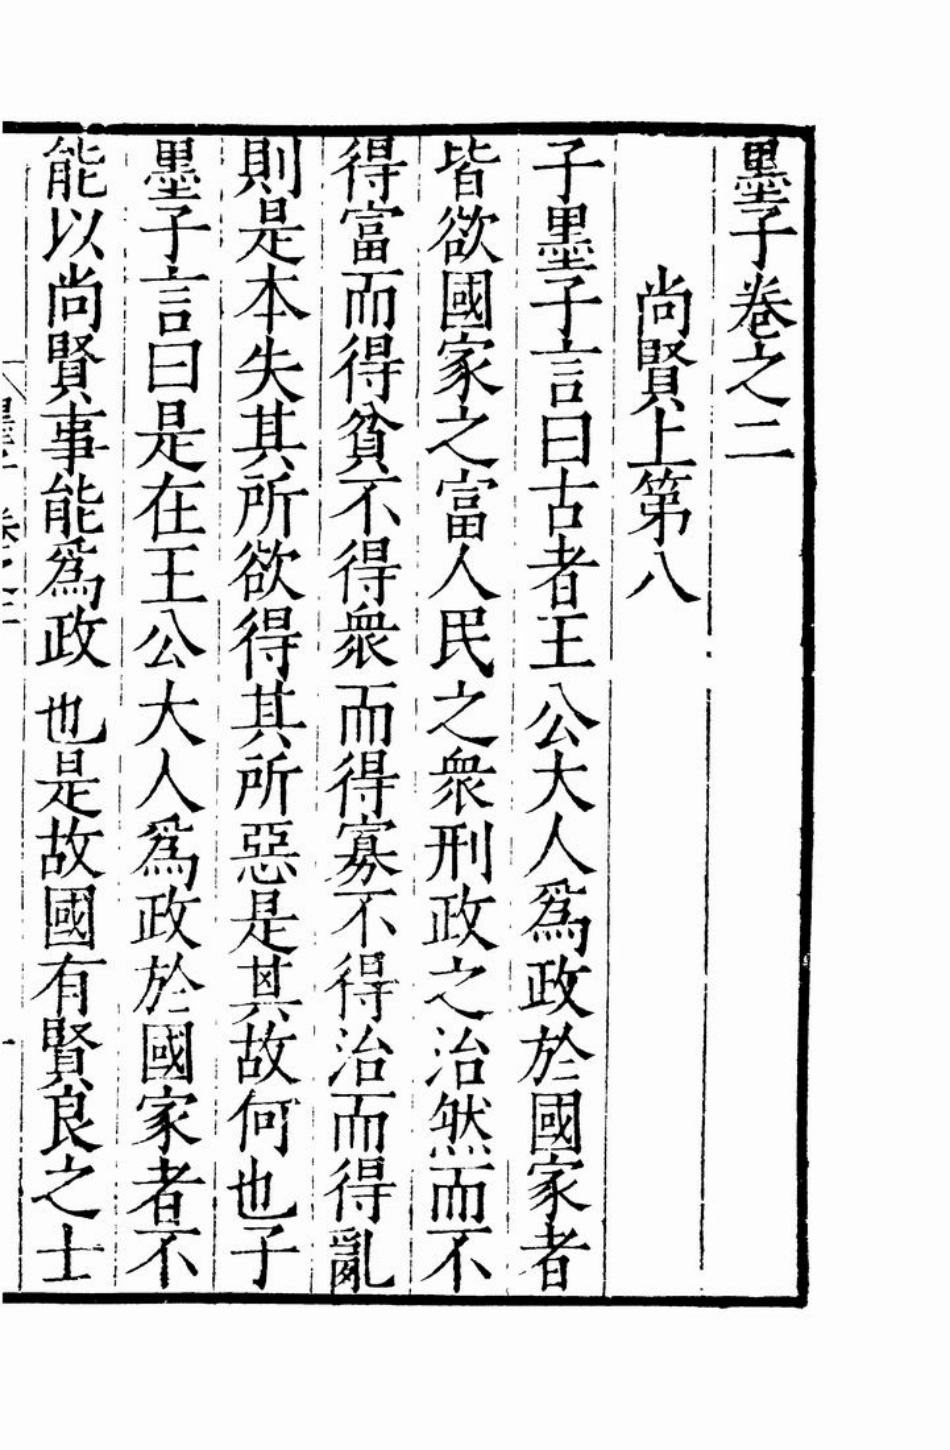 墨子卷之二
尚賢上第八
子墨子言曰古者王公大人爲政於國家者
皆欲國家之富人民之衆刑政之治然而不
得富而得貧不得衆而得寡不得治而得亂
則是本失其所欲得其所惡是其故何也子
墨子言曰是在王公大人爲政於國家者不
能以尚賢事能爲政也是故國有賢良之士